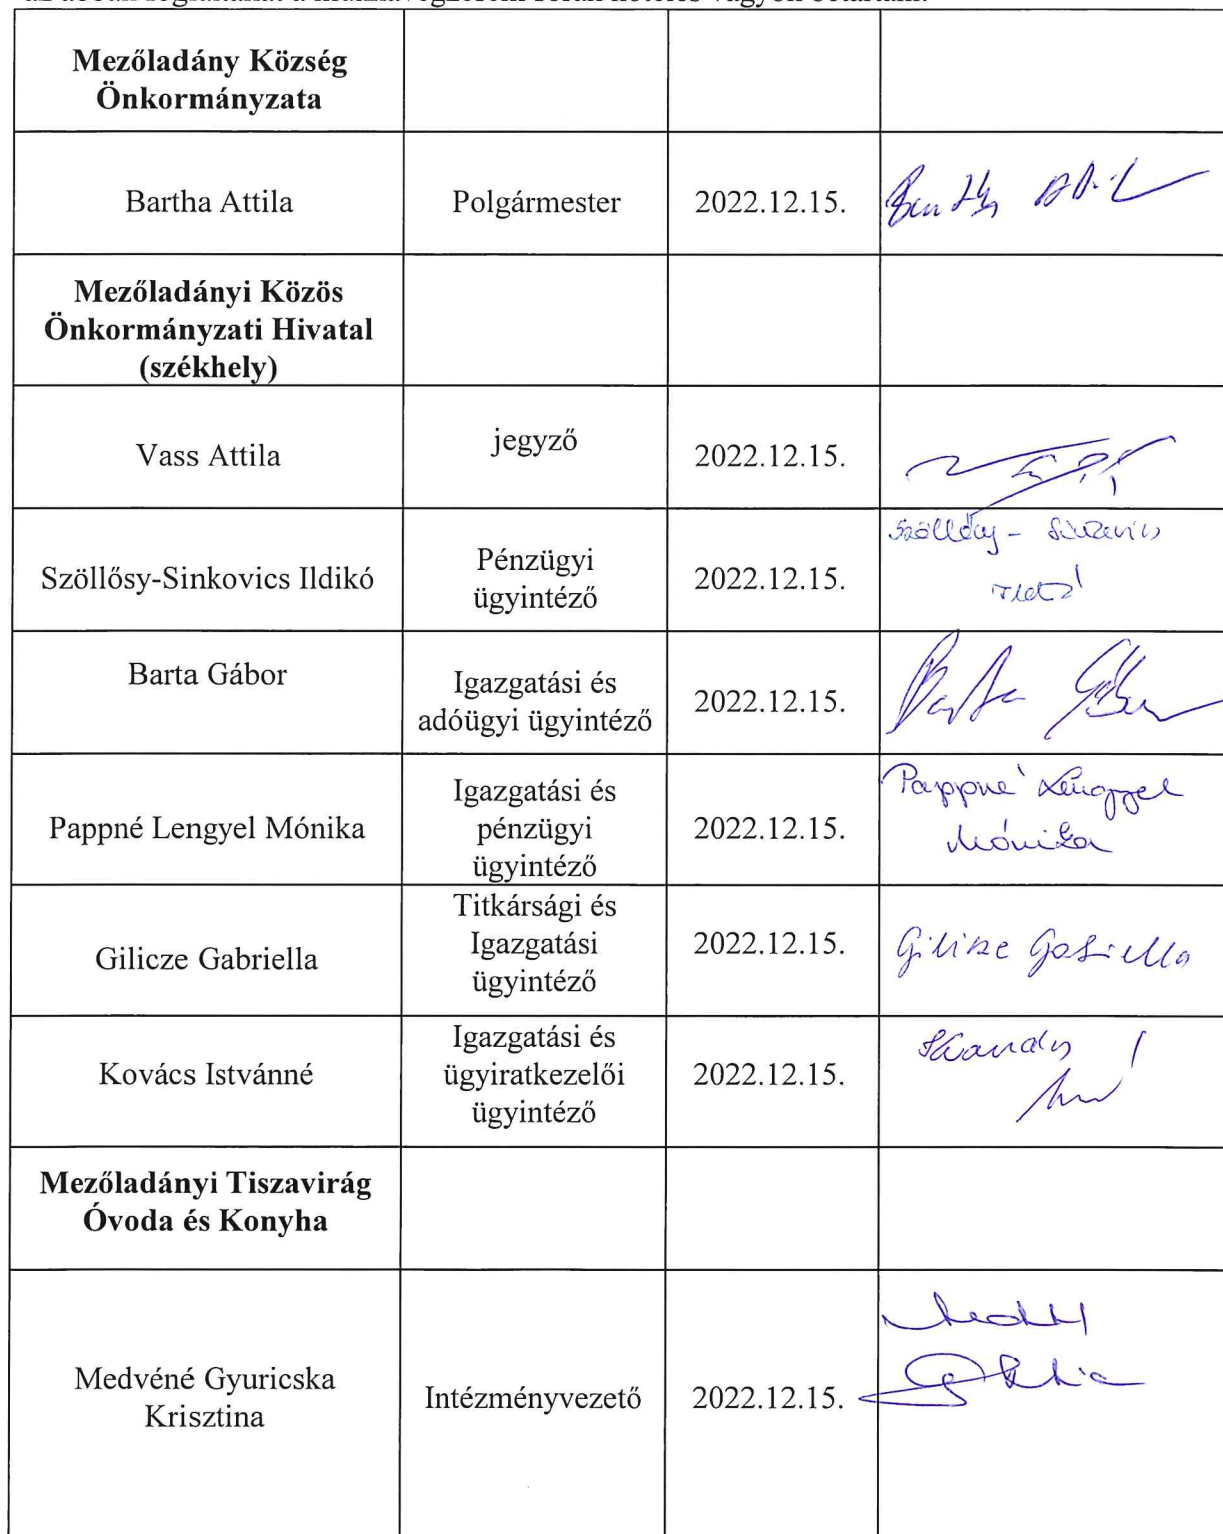 Mezőladány Község
Önkormányzata
Bartha Attila
Polgármester
2022.12.15.
Mezőladányi Közös
Önkormányzati Hivatal
(székhely)
Vass Attila
jegyző
2022.12.15.
Szöllősy-Sinkovics Ildikó
Pénzügyi
ügyintéző
2022.12.15.
Barta Gábor
Igazgatási és
adóügyi ügyintéző
2022.12.15.
Barta Gábor
Pappné Lengyel Mónika
Igazgatási és
pénzügyi
ügyintéző
2022.12.15.
Pappné Lengyel
Mónika
Gilicze Gabriella
Titkársági és
Igazgatási
ügyintéző
2022.12.15.
Gilicze Gabriella
Kovács Istvánné
Igazgatási és
ügyiratkezelői
ügyintéző
2022.12.15.
Mezőladányi Tiszavirág
Óvoda és Konyha
Medvéné Gyuricska
Krisztina
Intézményvezető
2022.12.15.